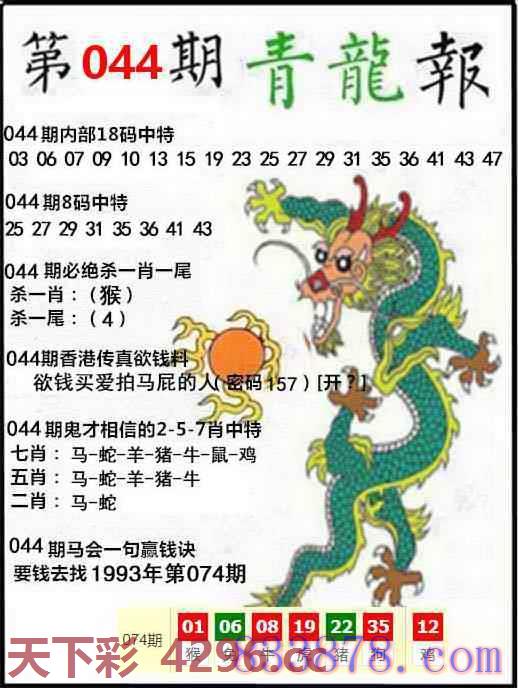 第044期青龍報
044期内部18码中特
03 06 07 09 10 13 15 19 23 25 27 29 31 35 36 41 43 47
044期8码中特
25 27 29 31 35 36 41 43
044 期必绝杀一肖一尾
杀一肖：（猴）
杀一尾：（4）
044期香港传真欲钱料
欲钱买爱拍马屁的人(密码157) [开？]
044期鬼才相信的2-5-7肖中特
七肖：马-蛇-羊-猪-牛-鼠-鸡
五肖：马-蛇-羊-猪-牛
二肖：马-蛇
044期马会一句赢钱诀
要钱去找1993年第074期
074期 01 06 08 19 22 35 12
猴 兔 牛 虎 猪 狗 鸡
天下彩 4296.cc